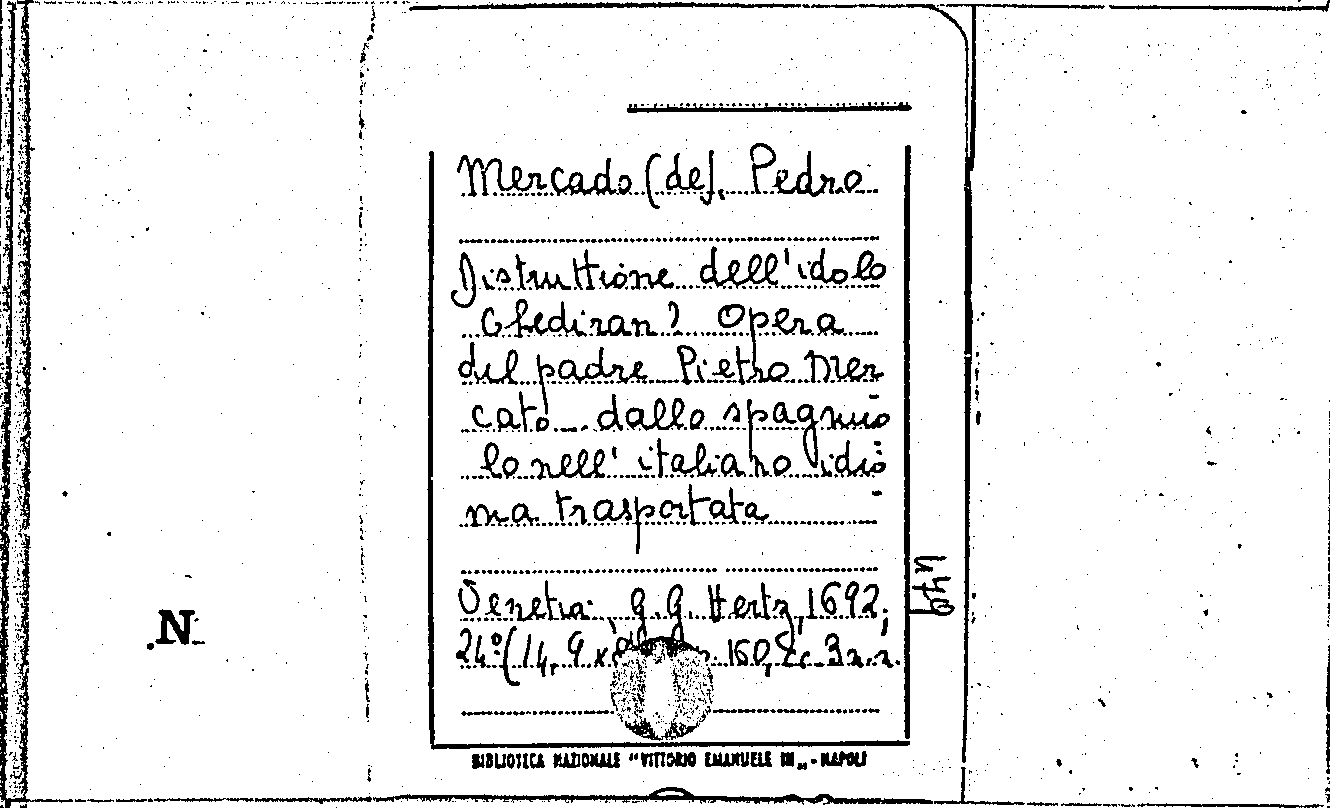 Mercado (de), Pedro
Distruttione dell'idolo
Chediran? Opera
del padre Pietro Mer
cato... dallo spagnuo
lo nell' italiano idio
ma trasportata
Venetia, G.G. Hertz, 1692,
24º (14, 9 x 160, 3 n.n.
BIBLIOTECA NAZIONALE "VITTORIO EMANUELE III" - NAPOLI
N